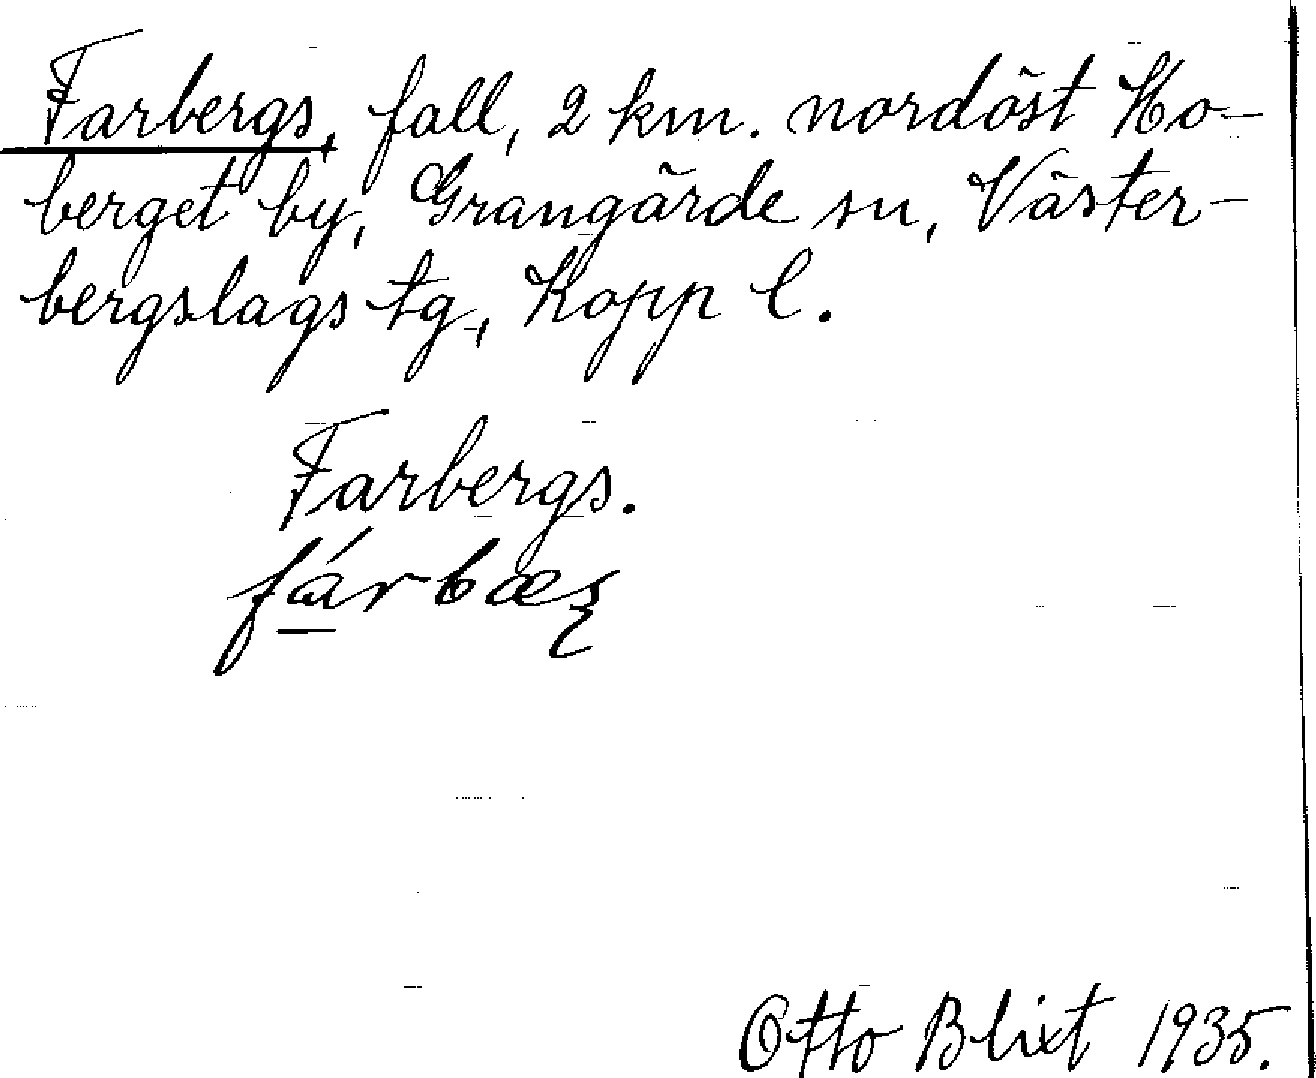 Farbergs, fall, 2 km. nordöst Ho-
berget by, Grangärde sn, Väster-
bergslags tg, Kopp l.
Farbergs.
fárbæ
Otto Blixt 1935.